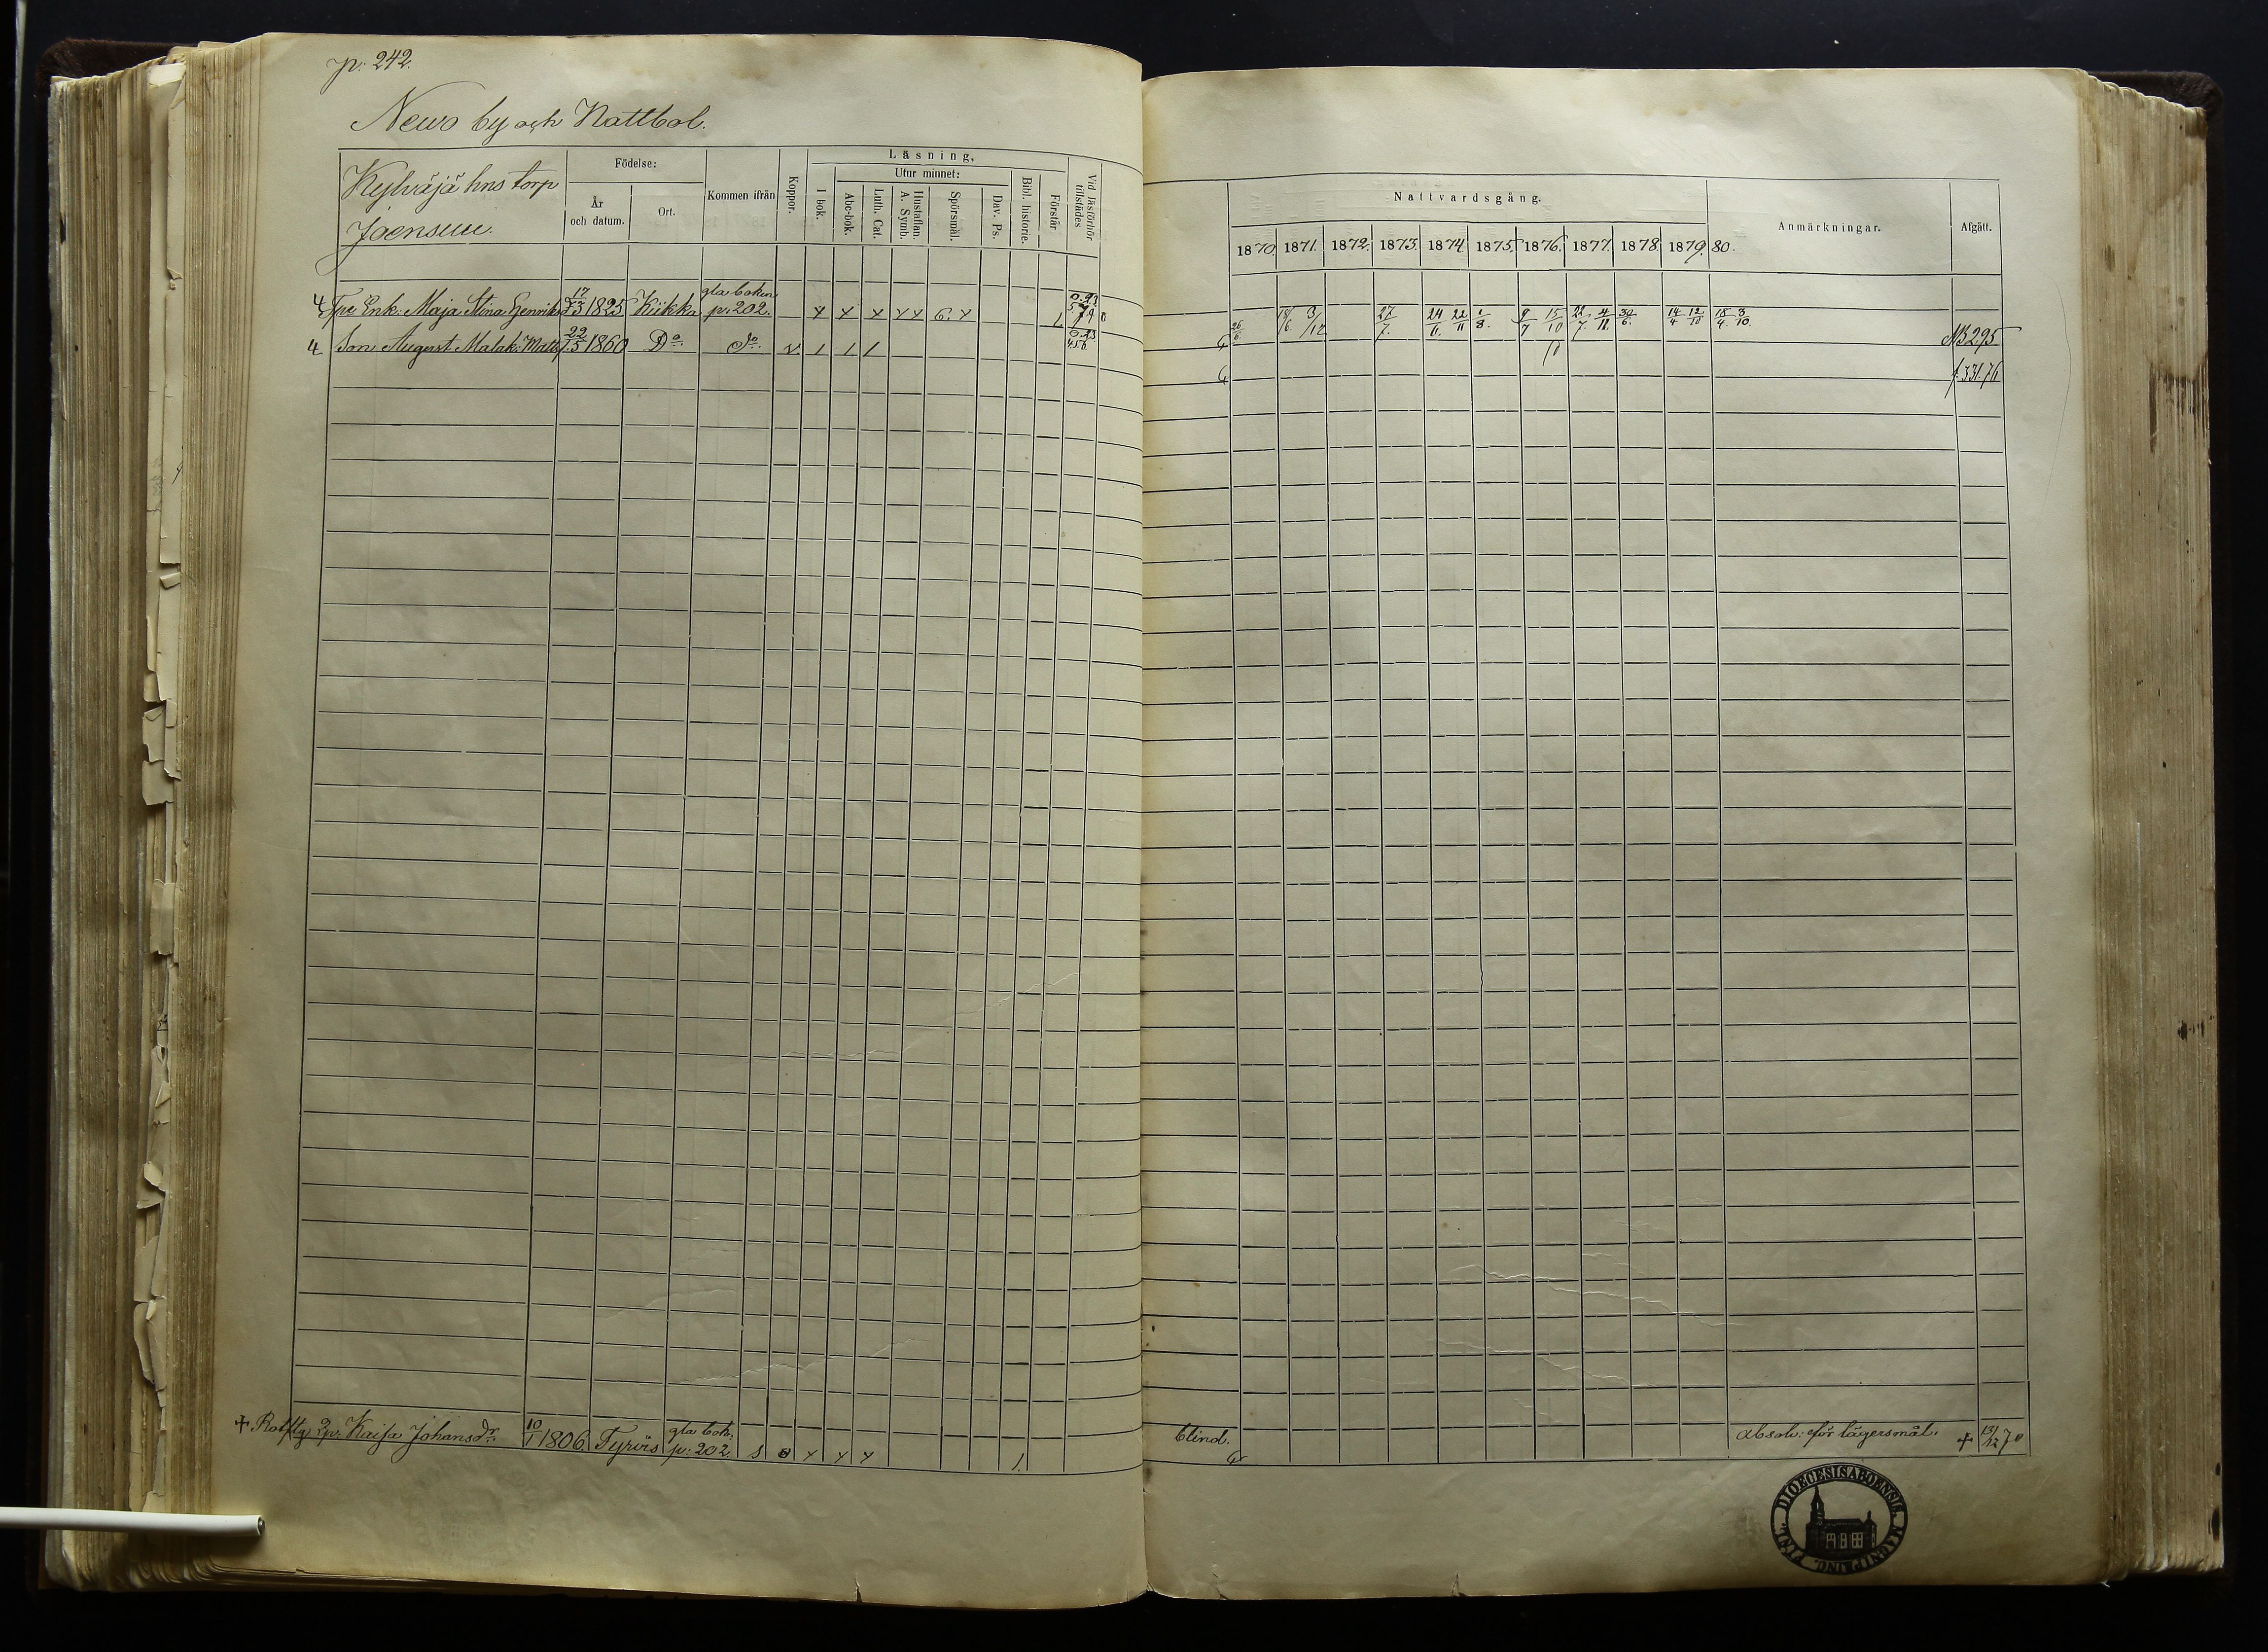 p: 242.
Newo by och Nattbol.
Kylväjä hns torp
Joensuu.
Födelse:
År
och datum.
Ort.
Kommen ifrån
Koppor.
Läsning,
I bok.
Utur minnet:
Abc-bok.
Luth. Cat.
Hustaflan.
A. Symb.
Spörsmål.
Dav. Ps.
Bibl. historie.
Förstår
Vid läsförhör
tillstädes
Nattvardsgång.
1870. 1871. 1872. 1873. 1874 1875. 1876. 1877. 1878. 1879. 80.
Anmärkningar.
Afgått.
4 Enk. Maja Stina Henriks 17/3 1825 Kiikka gla boken p. 202.
18/6 3/12 27/7. 24/6. 22/11 1/8. 9/7 15/10 22/7. 4/11. 30/6. 14/4 12/10 18/4. 3/10. NB 295
4 Son August Malak: Matts 22/5 1860 Do Do v. 1 1 1
f. 331. 76
+ Kaisa Johansdr. 10/1 1806. Tyrvis gla bok: p: 202. s
blind.
absol: för lägersmål. + 13/12 70
DIOECESIS ABOENSIS. MAGNI PRINC. FINL.